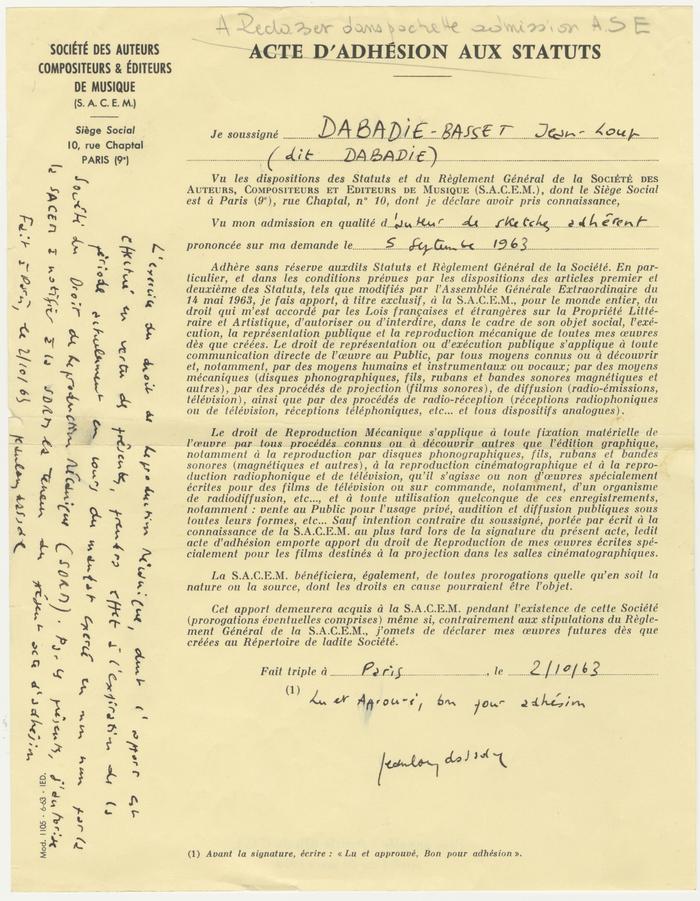 A Reclasser dans pochette admission A.S.E
SOCIÉTÉ DES AUTEURS
COMPOSITEURS & ÉDITEURS
DE MUSIQUE
(S. A. C. E. M.)
Siège Social
10, rue Chaptal
PARIS (9e)
ACTE D'ADHÉSION AUX STATUTS
Je soussigné DABADIE-BASSET Jean-Loup
(dit DABADIE)
Vu les dispositions des Statuts et du Règlement Général de la SOCIÉTÉ DES
AUTEURS, COMPOSITEURS ET EDITEURS DE MUSIQUE (S.A.C.E.M.), dont le Siège Social
est à Paris (9e), rue Chaptal, n° 10, dont je déclare avoir pris connaissance,
Vu mon admission en qualité d'auteur de sketches adhérent
prononcée sur ma demande le 5 Septembre 1963
Adhère sans réserve auxdits Statuts et Règlement Général de la Société. En par-
ticulier, et dans les conditions prévues par les dispositions des articles premier et
deuxième des Statuts, tels que modifiés par l'Assemblée Générale Extraordinaire du
14 mai 1963, je fais apport, à titre exclusif, à la S.A.C.E.M., pour le monde entier, du
droit qui m'est accordé par les Lois françaises et étrangères sur la Propriété Litté-
raire et Artistique, d'autoriser ou d'interdire, dans le cadre de son objet social, l'exé-
cution, la représentation publique et la reproduction mécanique de toutes mes œuvres
dès que créées. Le droit de représentation ou d'exécution publique s'applique à toute
communication directe de l'œuvre au Public, par tous moyens connus ou à découvrir
et, notamment, par des moyens humains et instrumentaux ou vocaux; par des moyens
mécaniques (disques phonographiques, fils, rubans et bandes sonores magnétiques et
autres), par des procédés de projection (films sonores), de diffusion (radio-émissions,
télévision), ainsi que par des procédés de radio-réception (réceptions radiophoniques
ou de télévision, réceptions téléphoniques, etc... et tous dispositifs analogues).
Le droit de Reproduction Mécanique s'applique à toute fixation matérielle de
l'œuvre par tous procédés connus ou à découvrir autres que l'édition graphique,
notamment à la reproduction par disques phonographiques, fils, rubans et bandes
sonores (magnétiques et autres), à la reproduction cinématographique et à la repro-
duction radiophonique et de télévision, qu'il s'agisse ou non d'œuvres spécialement
écrites pour des films de télévision ou sur commande, notamment, d'un organisme
de radiodiffusion, etc..., et à toute utilisation quelconque de ces enregistrements,
notamment : vente au Public pour l'usage privé, audition et diffusion publiques sous
toutes leurs formes, etc... Sauf intention contraire du soussigné, portée par écrit à la
connaissance de la S.A.C.E.M. au plus tard lors de la signature du présent acte, ledit
acte d'adhésion emporte apport du droit de Reproduction de mes œuvres écrites spé-
cialement pour les films destinés à la projection dans les salles cinématographiques.
La S.A.C.E.M. bénéficiera, également, de toutes prorogations quelle qu'en soit la
nature ou la source, dont les droits en cause pourraient être l'objet.
Cet apport demeurera acquis à la S.A.C.E.M. pendant l'existence de cette Société
(prorogations éventuelles comprises) même si, contrairement aux stipulations du Règle-
ment Général de la S.A.C.E.M., j'omets de déclarer mes œuvres futures dès que
créées au Répertoire de ladite Société.
Fait triple à Paris, le 2/10/63
(1) Lu et Approuvé, bon pour adhésion
(1) Avant la signature, écrire : « Lu et approuvé, Bon pour adhésion ».
L'exercice du droit de Reproduction Mécanique, dont l'apport est
effectué en vertu de présente, prendra effet à l'expiration de la
période actuellement en cours du mandat exercé en mon nom par la
Société du Droit de Reproduction Mécanique (SDRM). Par la présente, j'autorise
la SACEM à notifier à la SDRM la teneur du présent acte d'adhésion
Fait à Paris, le 2/10/63
Mod. 1105 - 6-63 - IEO.